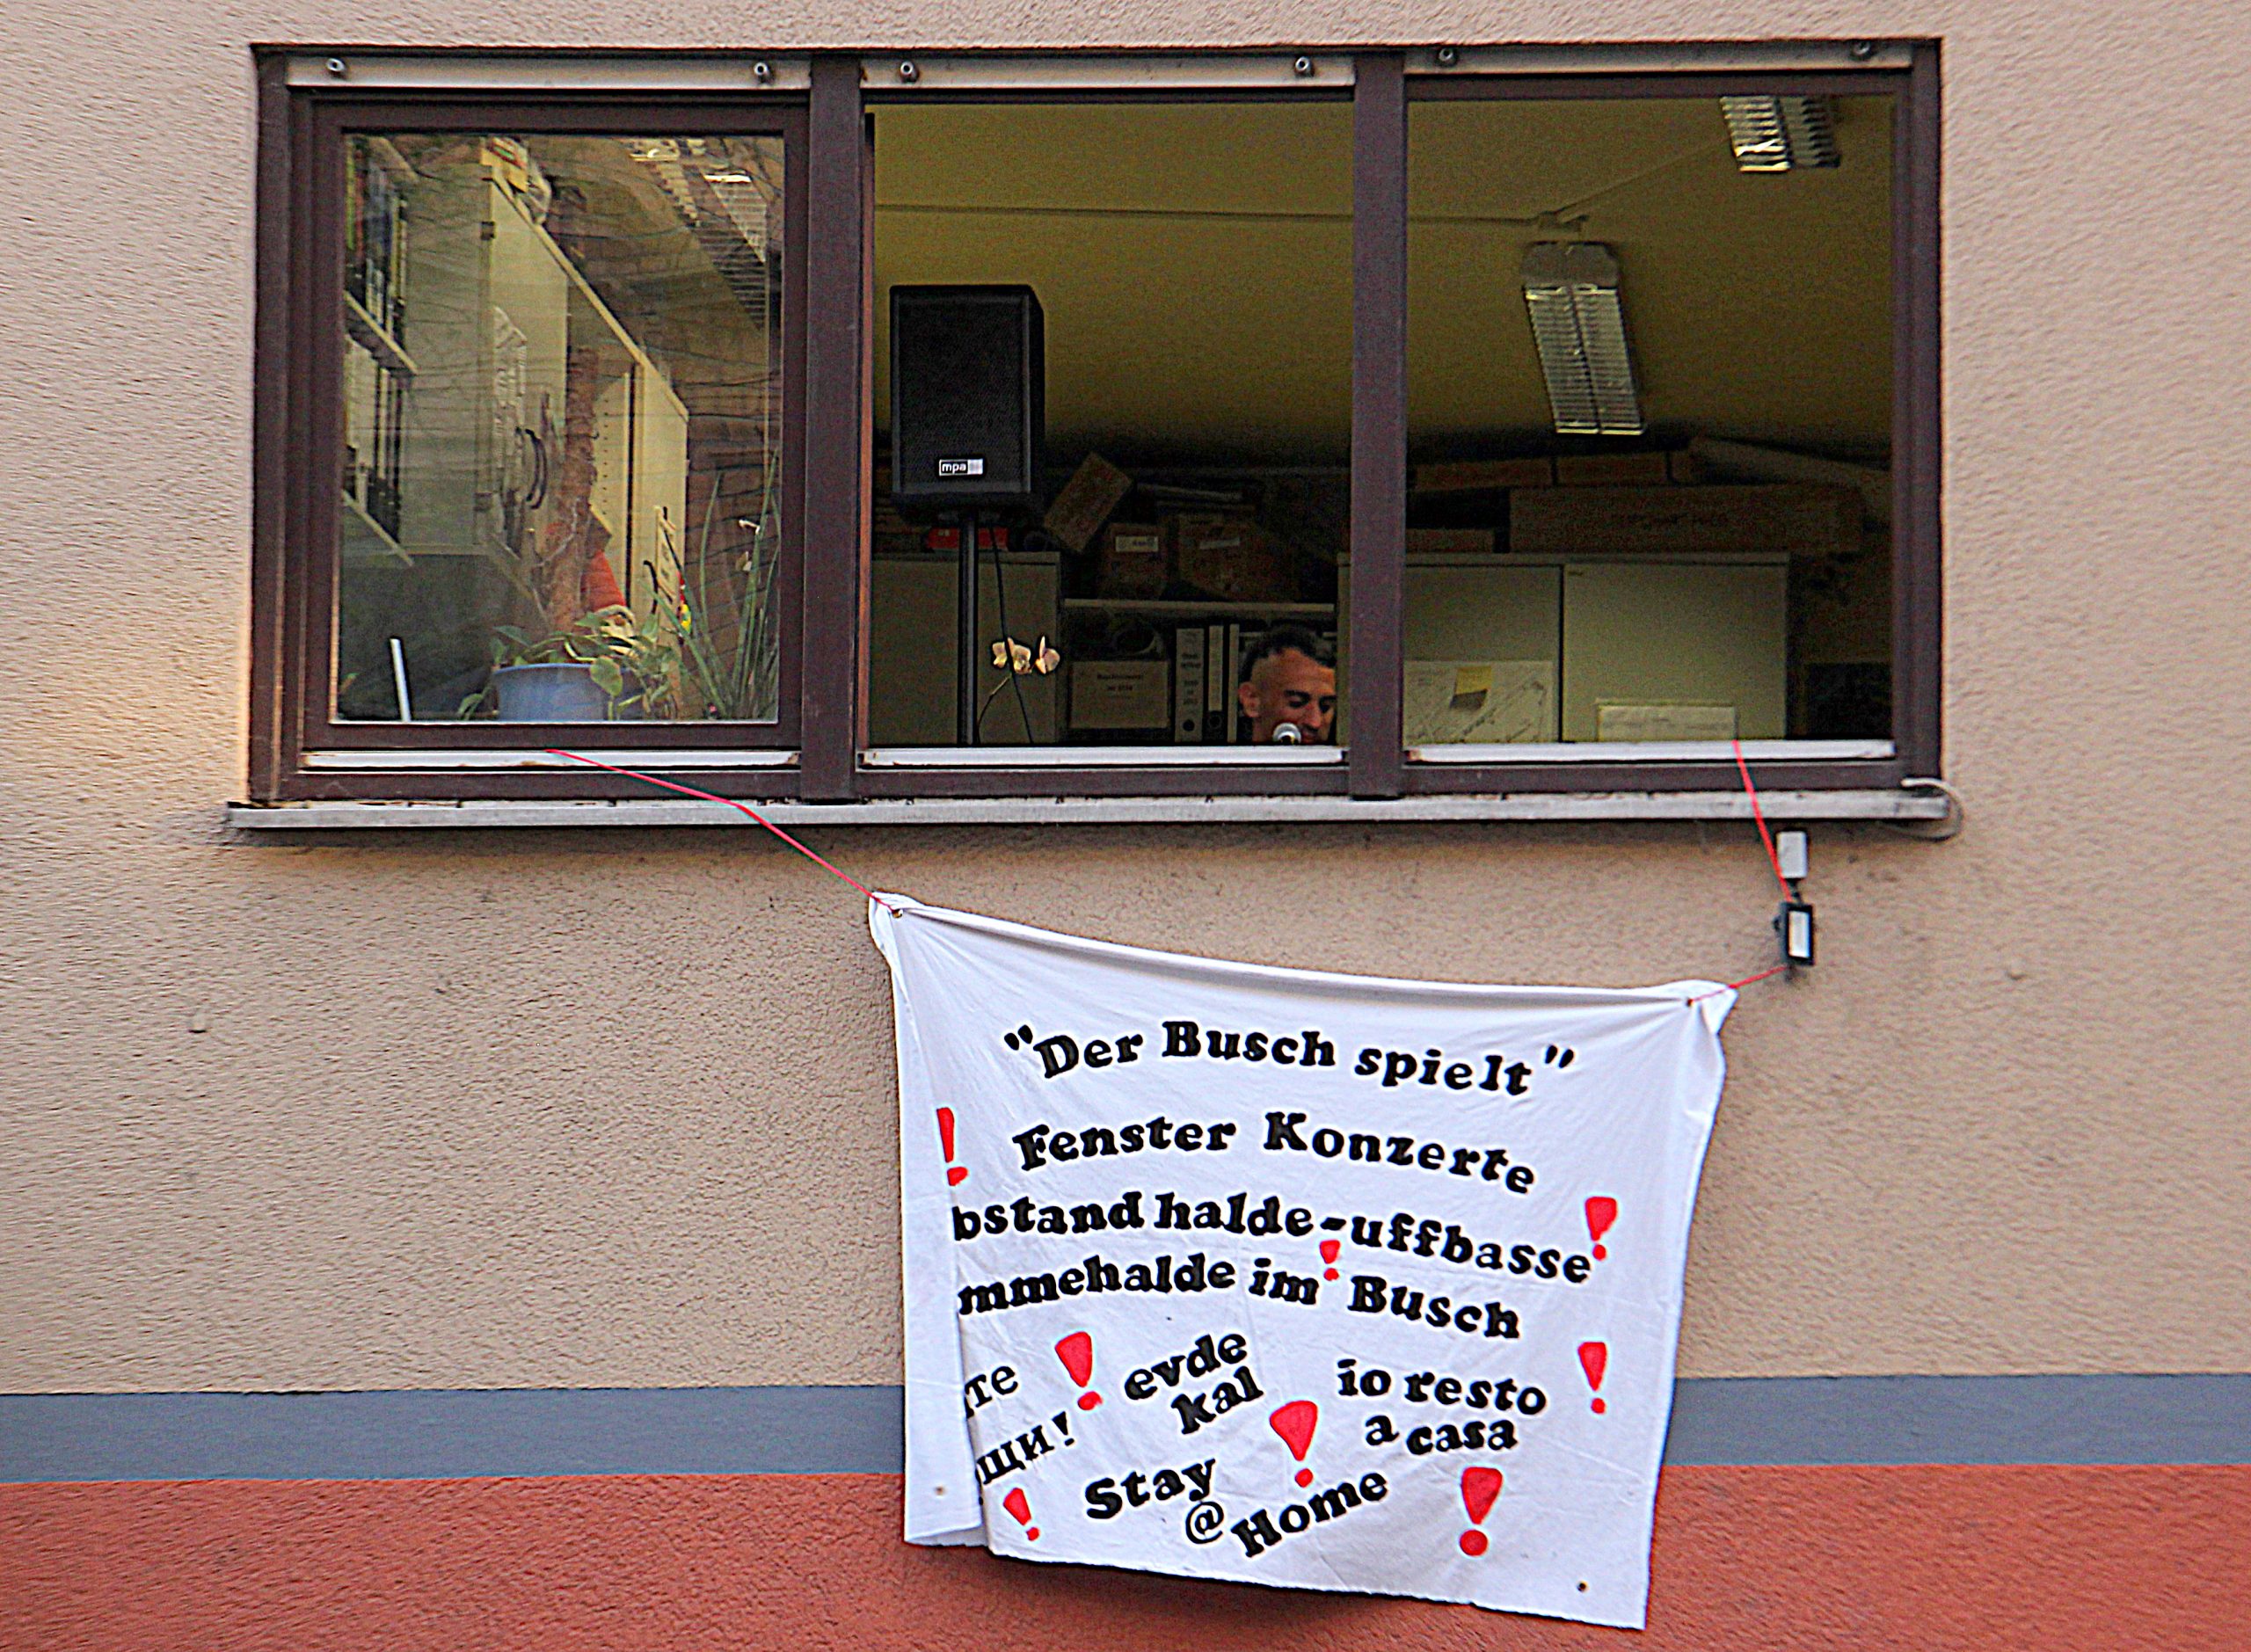 mpa
"Der Busch spielt"
! Fenster Konzerte
bstand halde-uffbasse!
mmehalde im! Busch
те ! evde kal
щи!
io resto !
a casa
! Stay ! @Home !